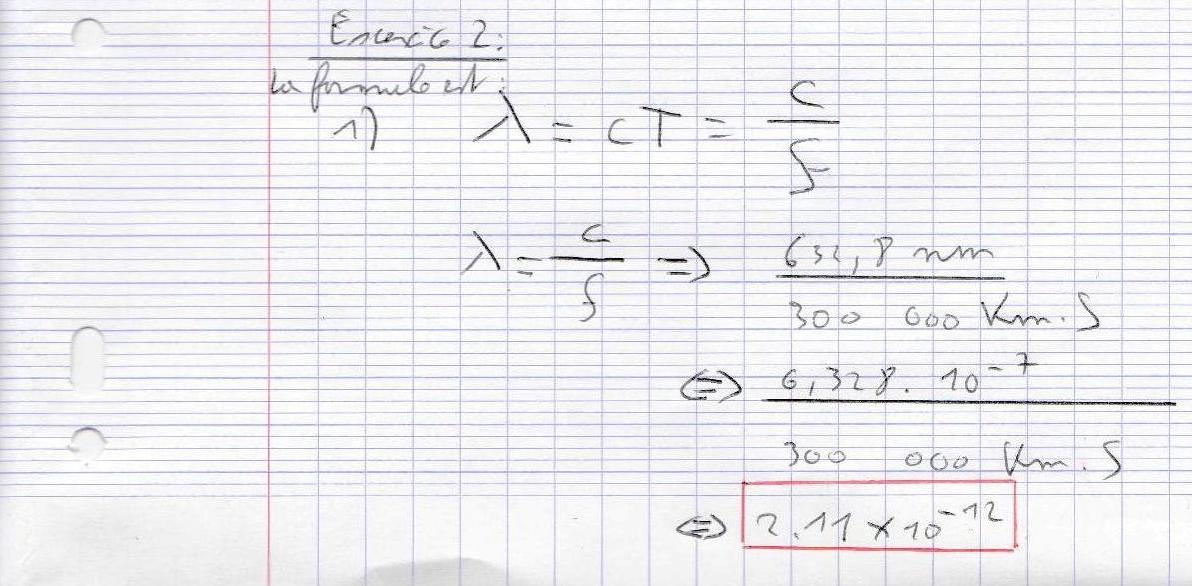 Exercice 2:
La formule est:
1) λ = cT = c/f
λ = c/f => 632,8 nm / 300 000 Km.S
<=> 6,328. 10^-7 / 300 000 Km.S
<=> 2.11 × 10^-12